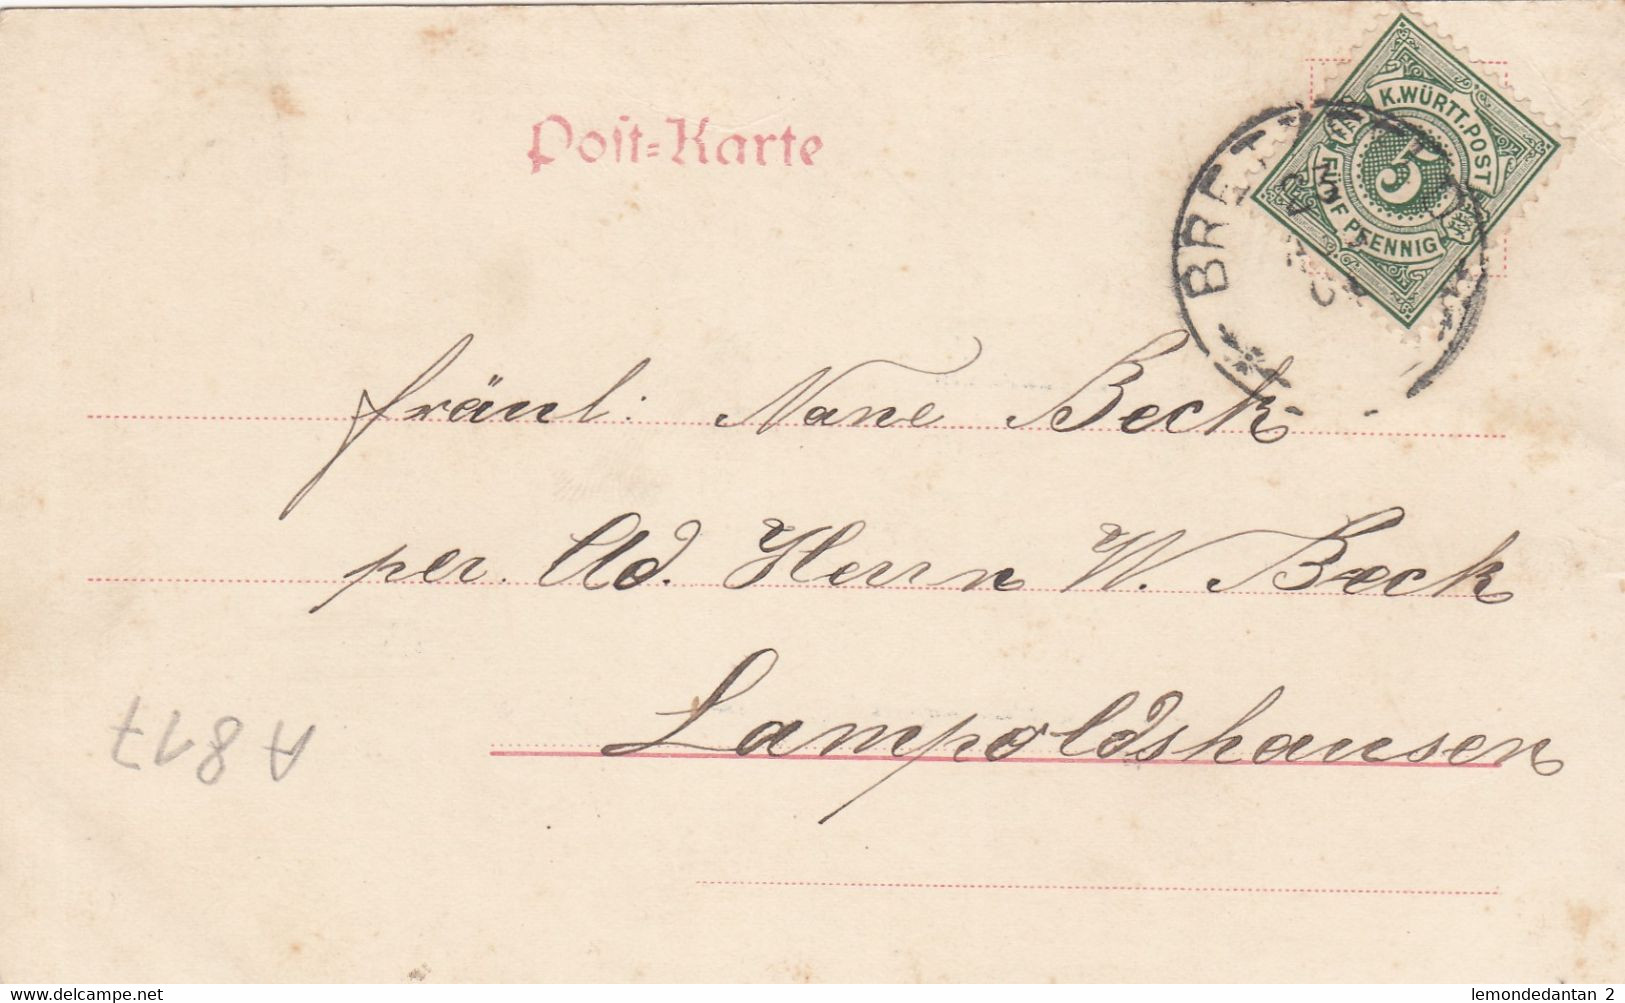 Post-Karte
K. WÜRTT. POST
5
FÜNF PFENNIG
BRET
Fräul: Nane Beck
per. Ad. Herrn W. Beck
Lampoldshausen
A 817
lemondedantan_2